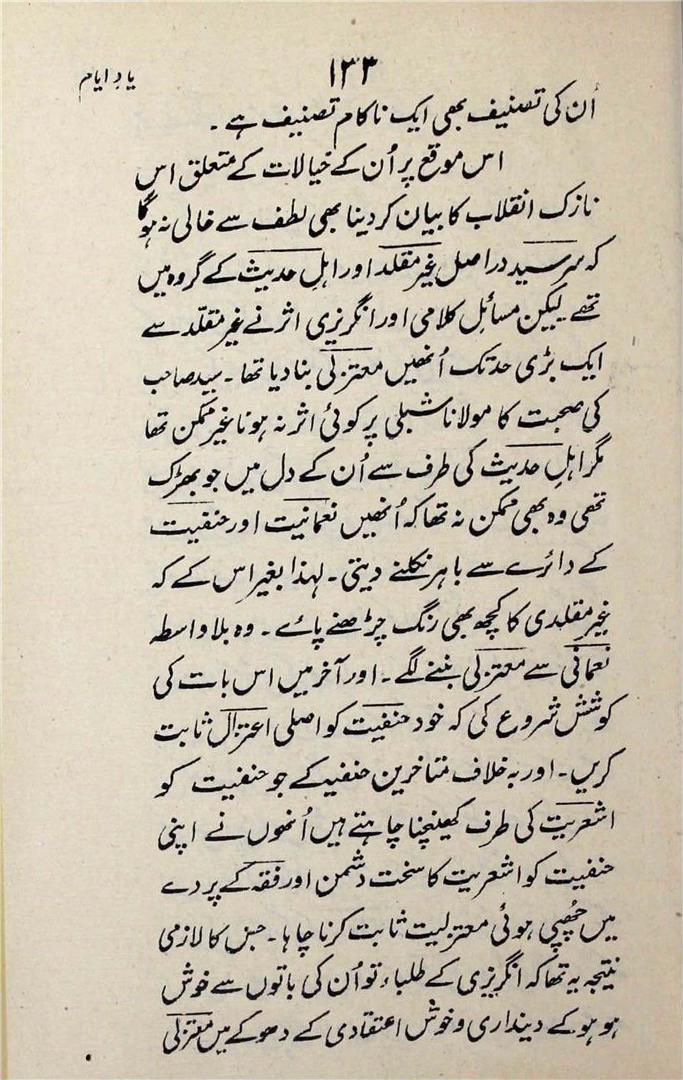 ۱۳۳
یادِ ایام
اُن کی تصنیف بھی ایک ناکام تصنیف ہے ۔
اس موقع پر اُن کے خیالات کے متعلق اس
نازک انقلاب کا بیان کر دینا بھی لطف سے خالی نہ ہوگا
کہ سرسید دراصل غیر مقلد اور اہلِ حدیث کے گروہ میں
تھے لیکن مسائلِ کلامی اور انگریزی اثر نے غیر مقلّد سے
ایک بڑی حد تک اُنھیں معتزلی بنا دیا تھا ۔ سید صاحب
کی صحبت کا مولانا شبلی پر کوئی اثر نہ ہونا غیر ممکن تھا
مگر اہلِ حدیث کی طرف سے اُن کے دل میں جو بھڑک
تھی وہ بھی ممکن نہ تھا کہ اُنھیں نعمانیت اور حنفیت
کے دائرے سے باہر نکلنے دیتی ۔ لہذا بغیر اس کے کہ
غیر مقلدی کا کچھ بھی رنگ چڑھنے پائے ۔ وہ بلا واسطہ
نعمانی سے معتزلی بننے لگے ۔ اور آخر میں اس بات کی
کوشش شروع کی کہ خود حنفیت کو اصلی اعتزال ثابت
کریں ۔ اور بہ خلاف متاخرین حنفیہ کے جو حنفیت کو
اشعریت کی طرف کھینچنا چاہتے ہیں اُنھوں نے اپنی
حنفیت کو اشعریت کا سخت دشمن اور فقہ کے پردے
میں چُھپی ہوئی معتزلیت ثابت کرنا چاہا ۔ جس کا لازمی
نتیجہ یہ تھا کہ انگریزی کے طلباء تو اُن کی باتوں سے خوش
ہو ہو کے دینداری و خوش اعتقادی کے دھوکے میں معتزلی